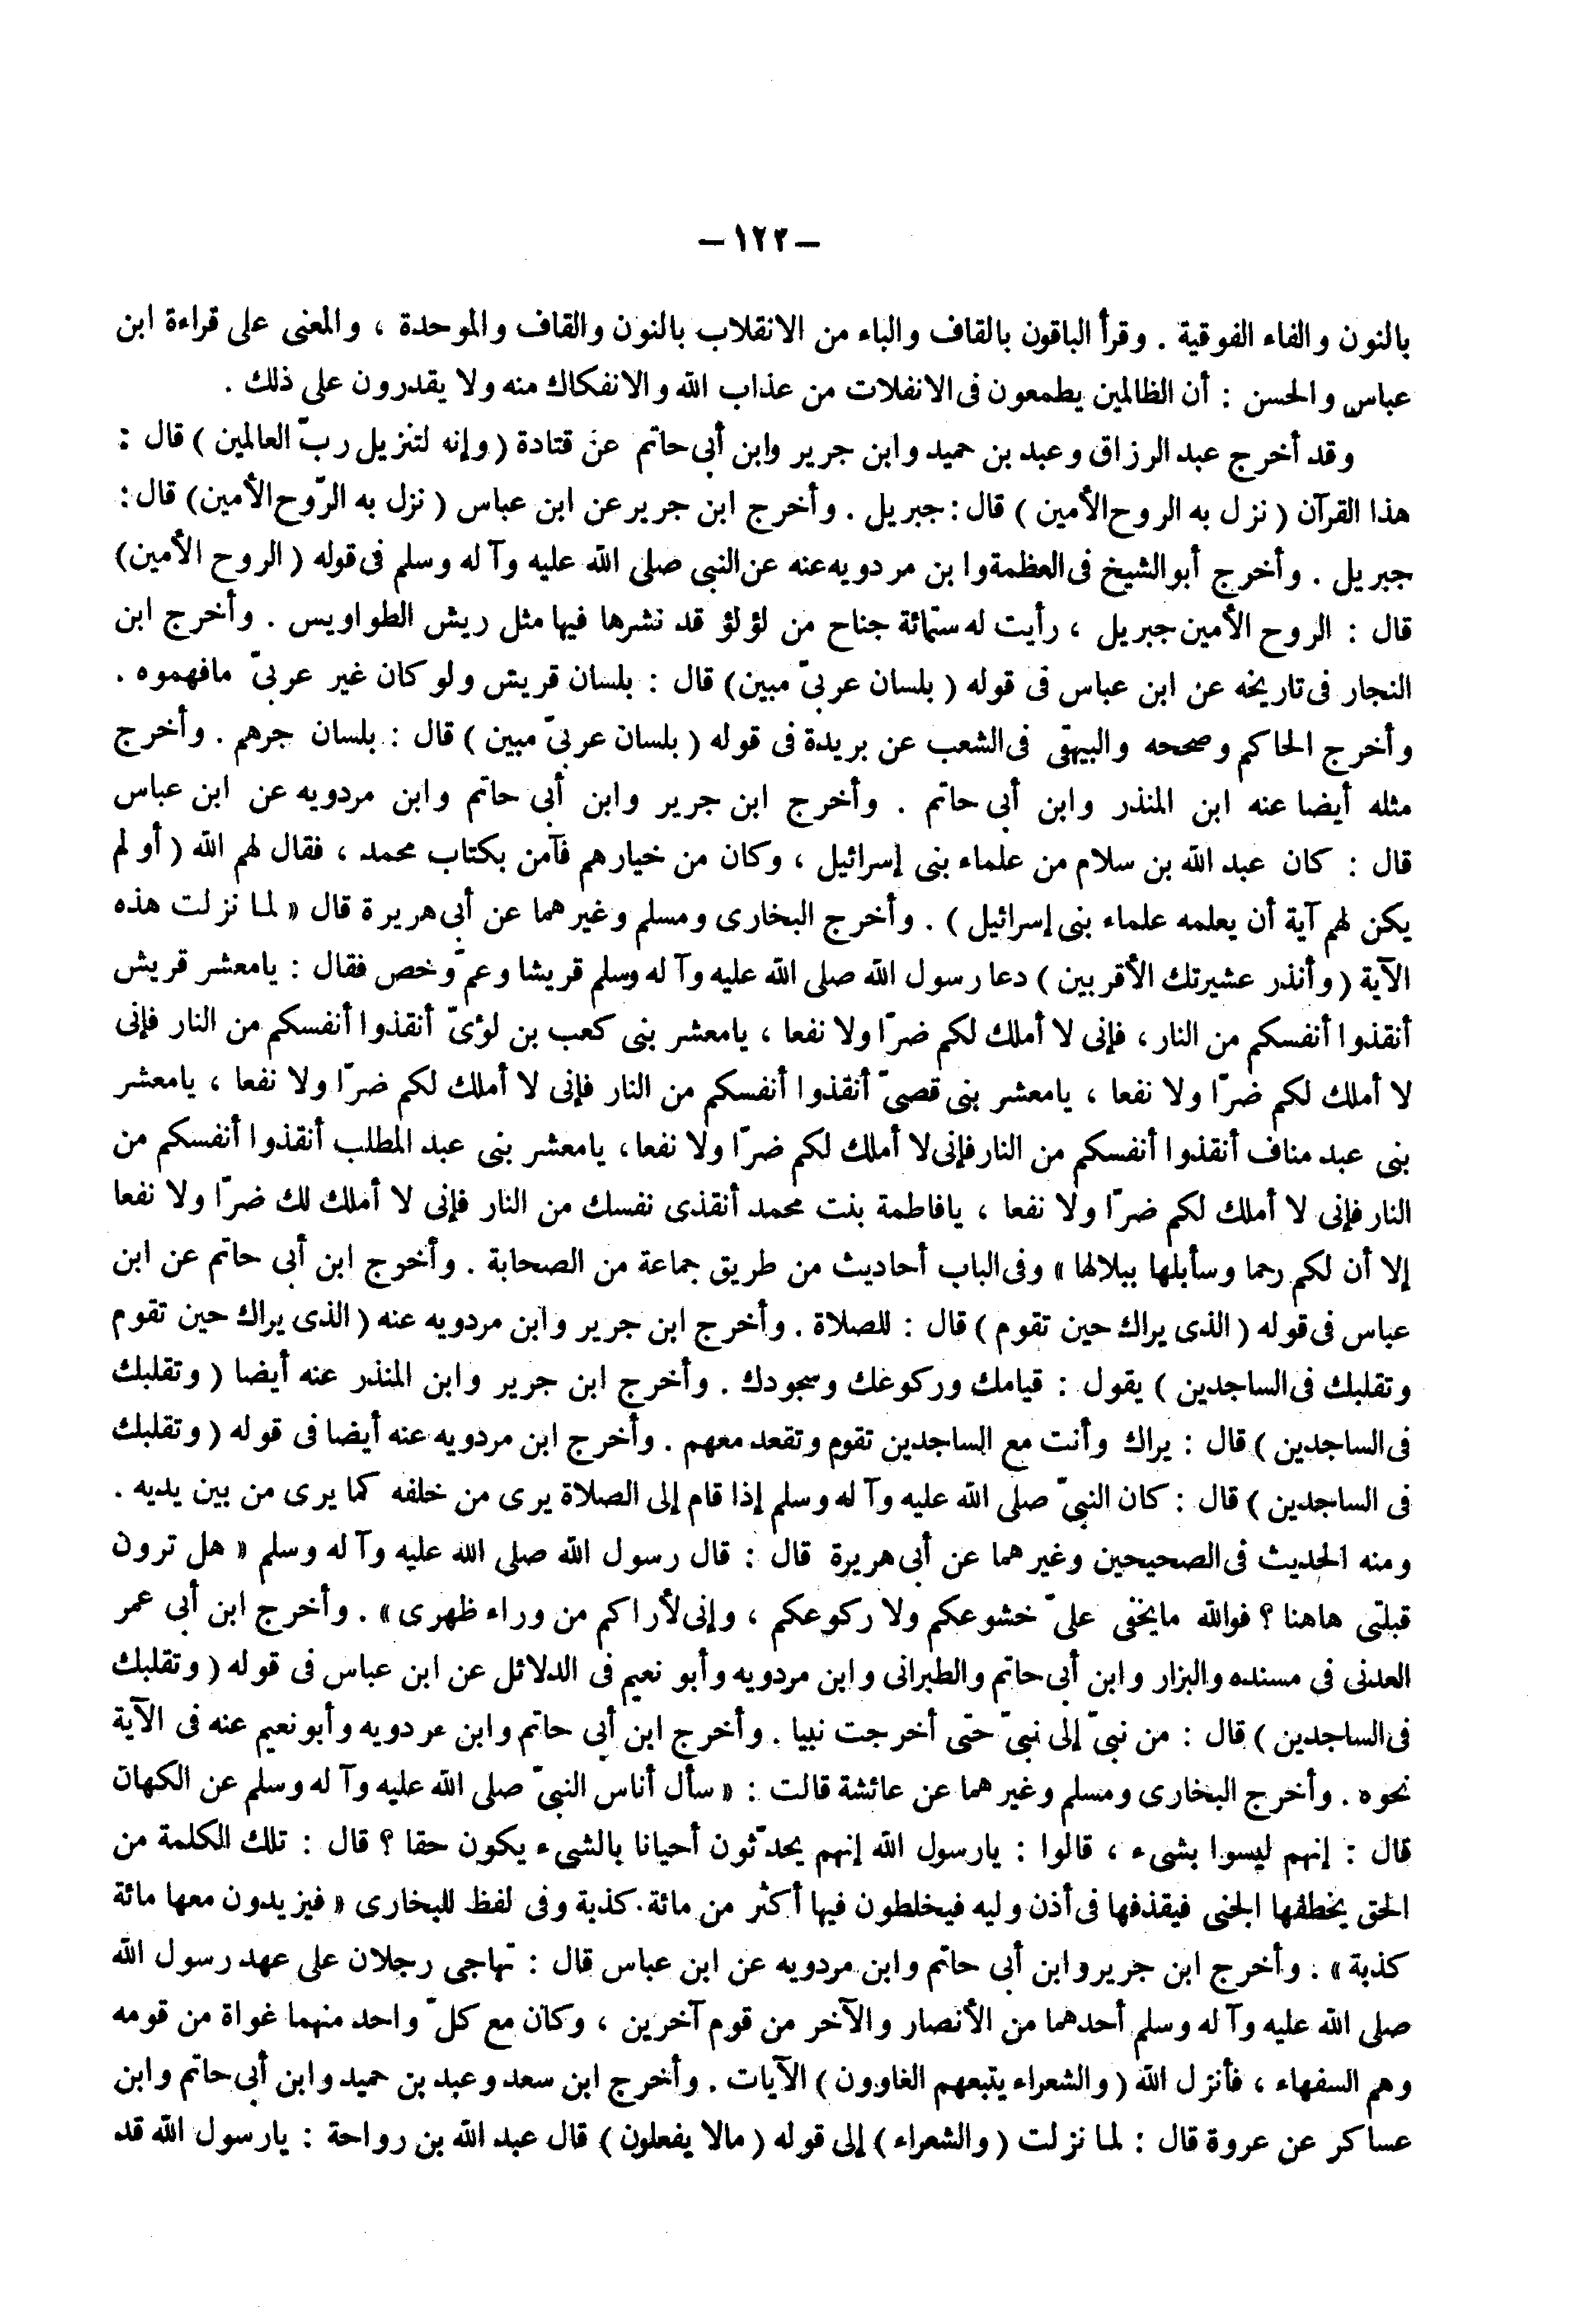 – ١٢٢ –
بالنون والفاء الفوقية . وقرأ الباقون بالقاف والباء من الانقلاب بالنون والقاف والموحدة ، والمعنى على قراءة ابن
عباس والحسن : أن الظالمين يطمعون فى الانفلات من عذاب الله والانفكاك منه ولا يقدرون على ذلك .
وقد أخرج عبد الرزاق وعبد بن حميد وابن جرير وابن أبى حاتم عن قتادة ( وإنه لتنزيل ربّ العالمين ) قال :
هذا القرآن ( نزل به الروح الأمين ) قال : جبريل . وأخرج ابن جرير عن ابن عباس ( نزل به الرّوح الأمين) قال :
جبريل . وأخرج أبو الشيخ فى العظمة وابن مردويه عنه عن النبى صلى الله عليه وآله وسلم فى قوله ( الروح الأمين)
قال : الروح الأمين جبريل ، رأيت له ستمائة جناح من لؤلؤ قد نشرها فيها مثل ريش الطواويس . وأخرج ابن
النجار فى تاريخه عن ابن عباس فى قوله ( بلسان عربىّ مبين) قال : بلسان قريش ولو كان غير عربىّ مافهموه .
وأخرج الحاكم وصححه والبيهقى فى الشعب عن بريدة فى قوله ( بلسان عربىّ مبين ) قال : بلسان جرهم . وأخرج
مثله أيضا عنه ابن المنذر وابن أبى حاتم . وأخرج ابن جرير وابن أبى حاتم وابن مردويه عن ابن عباس
قال : كان عبد الله بن سلام من علماء بنى إسرائيل ، وكان من خيارهم فآمن بكتاب محمد ، فقال لهم الله ( أو لم
يكن لهم آية أن يعلمه علماء بنى إسرائيل ) . وأخرج البخارى ومسلم وغيرهما عن أبى هريرة قال « لما نزلت هذه
الآية ( وأنذر عشيرتك الأقربين ) دعا رسول الله صلى الله عليه وآله وسلم قريشا وعمّ وخص فقال : يامعشر قريش
أنقذوا أنفسكم من النار ، فإنى لا أملك لكم ضرّا ولا نفعا ، يامعشر بنى كعب بن لؤىّ أنقذوا أنفسكم من النار فإنى
لا أملك لكم ضرّا ولا نفعا ، يامعشر بنى قصىّ أنقذوا أنفسكم من النار فإنى لا أملك لكم ضرّا ولا نفعا ، يامعشر
بنى عبد مناف أنقذوا أنفسكم من النار فإنى لا أملك لكم ضرّا ولا نفعا ، يامعشر بنى عبد المطلب أنقذوا أنفسكم من
النار فإنى لا أملك لكم ضرّا ولا نفعا ، يافاطمة بنت محمد أنقذى نفسك من النار فإنى لا أملك لك ضرّا ولا نفعا
إلا أن لكم رحما وسأبلها ببلالها » وفى الباب أحاديث من طريق جماعة من الصحابة . وأخرج ابن أبى حاتم عن ابن
عباس فى قوله ( الذى يراك حين تقوم ) قال : للصلاة . وأخرج ابن جرير وابن مردويه عنه ( الذى يراك حين تقوم
وتقلبك فى الساجدين ) يقول : قيامك وركوعك وسجودك . وأخرج ابن جرير وابن المنذر عنه أيضا ( وتقلبك
فى الساجدين ) قال : يراك وأنت مع الساجدين تقوم وتقعد معهم . وأخرج ابن مردويه عنه أيضا فى قوله ( وتقلبك
فى الساجدين ) قال : كان النبىّ صلى الله عليه وآله وسلم إذا قام إلى الصلاة يرى من خلفه كما يرى من بين يديه .
ومنه الحديث فى الصحيحين وغيرهما عن أبى هريرة قال : قال رسول الله صلى الله عليه وآله وسلم « هل ترون
قبلتى هاهنا ؟ فوالله مايخفى علىّ خشوعكم ولا ركوعكم ، وإنى لأراكم من وراء ظهرى » . وأخرج ابن أبى عمر
العدنى فى مسنده والبزار وابن أبى حاتم والطبرانى وابن مردويه وأبو نعيم فى الدلائل عن ابن عباس فى قوله ( وتقلبك
فى الساجدين ) قال : من نبىّ إلى نبىّ حتى أخرجت نبيا . وأخرج ابن أبى حاتم وابن مردويه وأبو نعيم عنه فى الآية
نحوه . وأخرج البخارى ومسلم وغيرهما عن عائشة قالت : « سأل أناس النبىّ صلى الله عليه وآله وسلم عن الكهان
قال : إنهم ليسوا بشىء ، قالوا : يارسول الله إنهم يحدّثون أحيانا بالشىء يكون حقا ؟ قال : تلك الكلمة من
الحق يخطفها الجنى فيقذفها فى أذن وليه فيخلطون فيها أكثر من مائة كذبة وفى لفظ للبخارى « فيزيدون معها مائة
كذبة » . وأخرج ابن جرير وابن أبى حاتم وابن مردويه عن ابن عباس قال : تهاجى رجلان على عهد رسول الله
صلى الله عليه وآله وسلم أحدهما من الأنصار والآخر من قوم آخرين ، وكان مع كلّ واحد منهما غواة من قومه
وهم السفهاء ، فأنزل الله ( والشعراء يتبعهم الغاوون ) الآيات . وأخرج ابن سعد وعبد بن حميد وابن أبى حاتم وابن
عساكر عن عروة قال : لما نزلت ( والشعراء ) إلى قوله ( مالا يفعلون ) قال عبد الله بن رواحة : يارسول الله قد